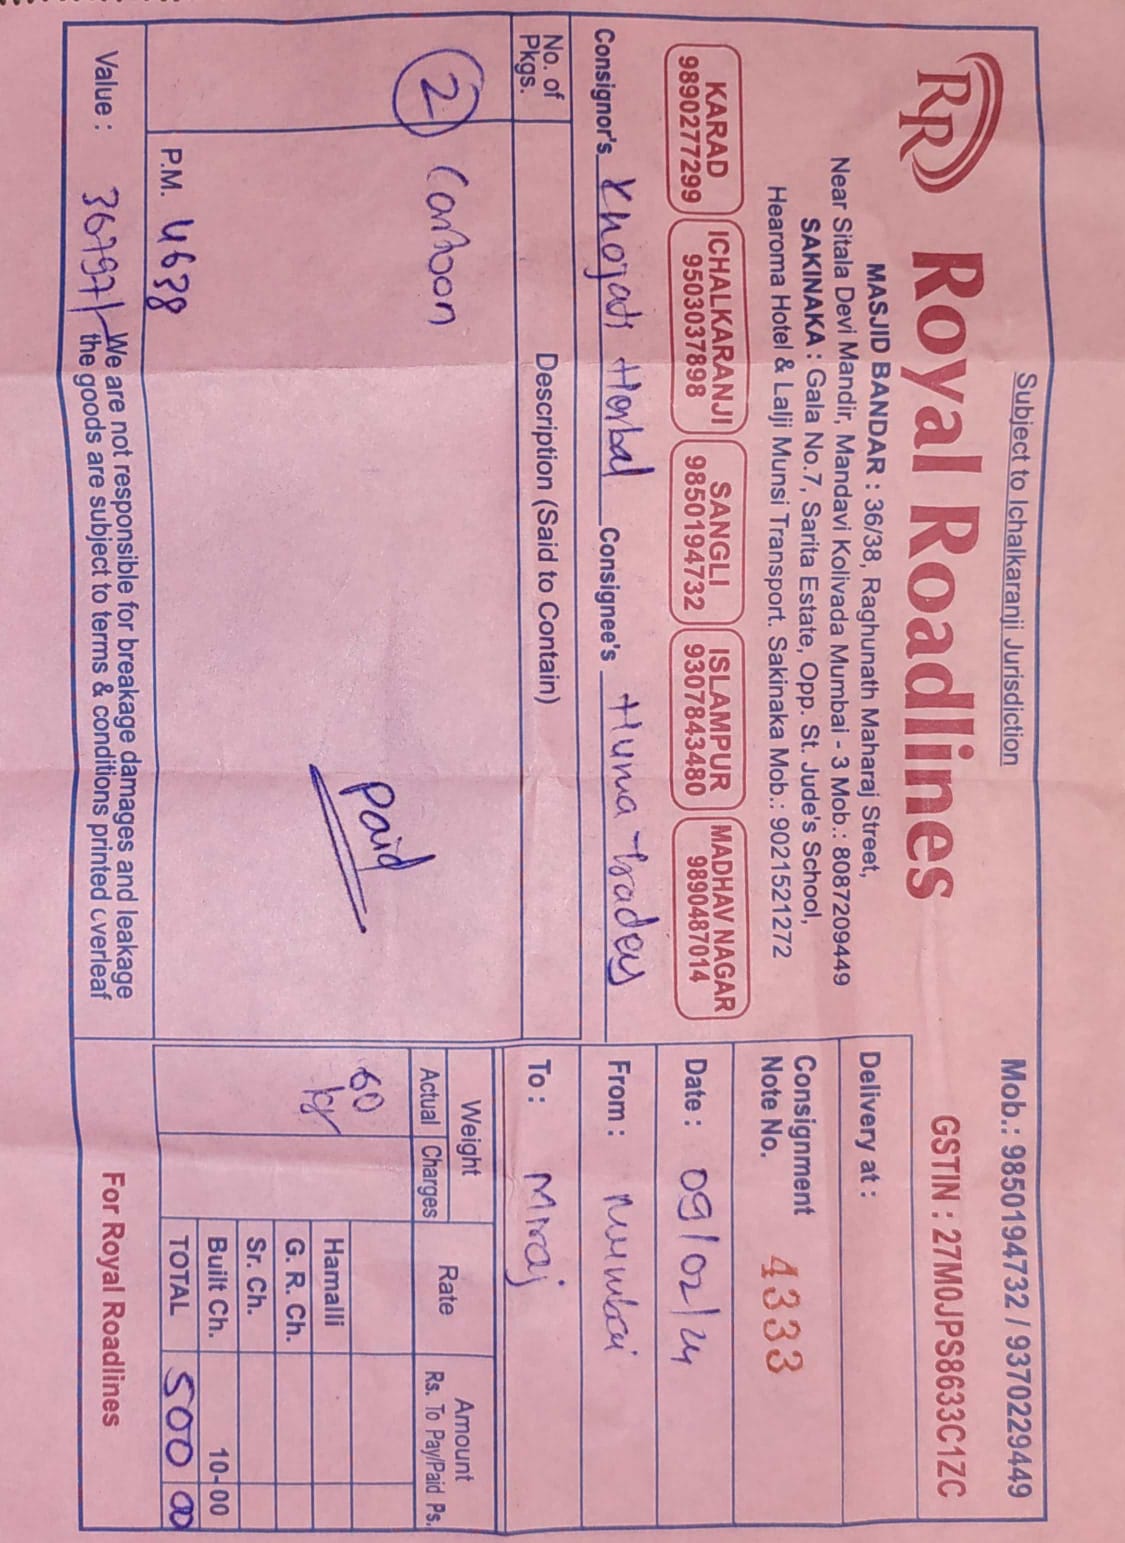 Subject to Ichalkaranji Jurisdiction
Mob.: 9850194732 / 9370229449
RR Royal Roadlines
GSTIN : 27MOJPS8633C1ZC
MASJID BANDAR : 36/38, Raghunath Maharaj Street,
Near Sitala Devi Mandir, Mandavi Kolivada Mumbai - 3 Mob.: 8087209449
SAKINAKA : Gala No.7, Sarita Estate, Opp. St. Jude's School,
Hearoma Hotel & Lalji Munsi Transport. Sakinaka Mob.: 9021521272
Delivery at :
Consignment
Note No.
4333
KARAD
9890277299
ICHALKARANJI
9503037898
SANGLI
9850194732
ISLAMPUR
9307843480
MADHAV NAGAR
9890487014
Date : 09/02/24
Consignor's Khojati Herbal Consignee's Huma tradey
From : Mumbai
No. of
Pkgs.
Description (Said to Contain)
To : Miraj
Weight
Actual
Charges
Rate
Amount
Rs. To Pay/Paid Ps.
2 Cartoon
60
kg
Paid
Hamalli
G. R. Ch.
Sr. Ch.
Built Ch. 10-00
TOTAL 500 00
P.M. 4638
Value : 36797/-
We are not responsible for breakage damages and leakage
the goods are subject to terms & conditions printed overleaf
For Royal Roadlines